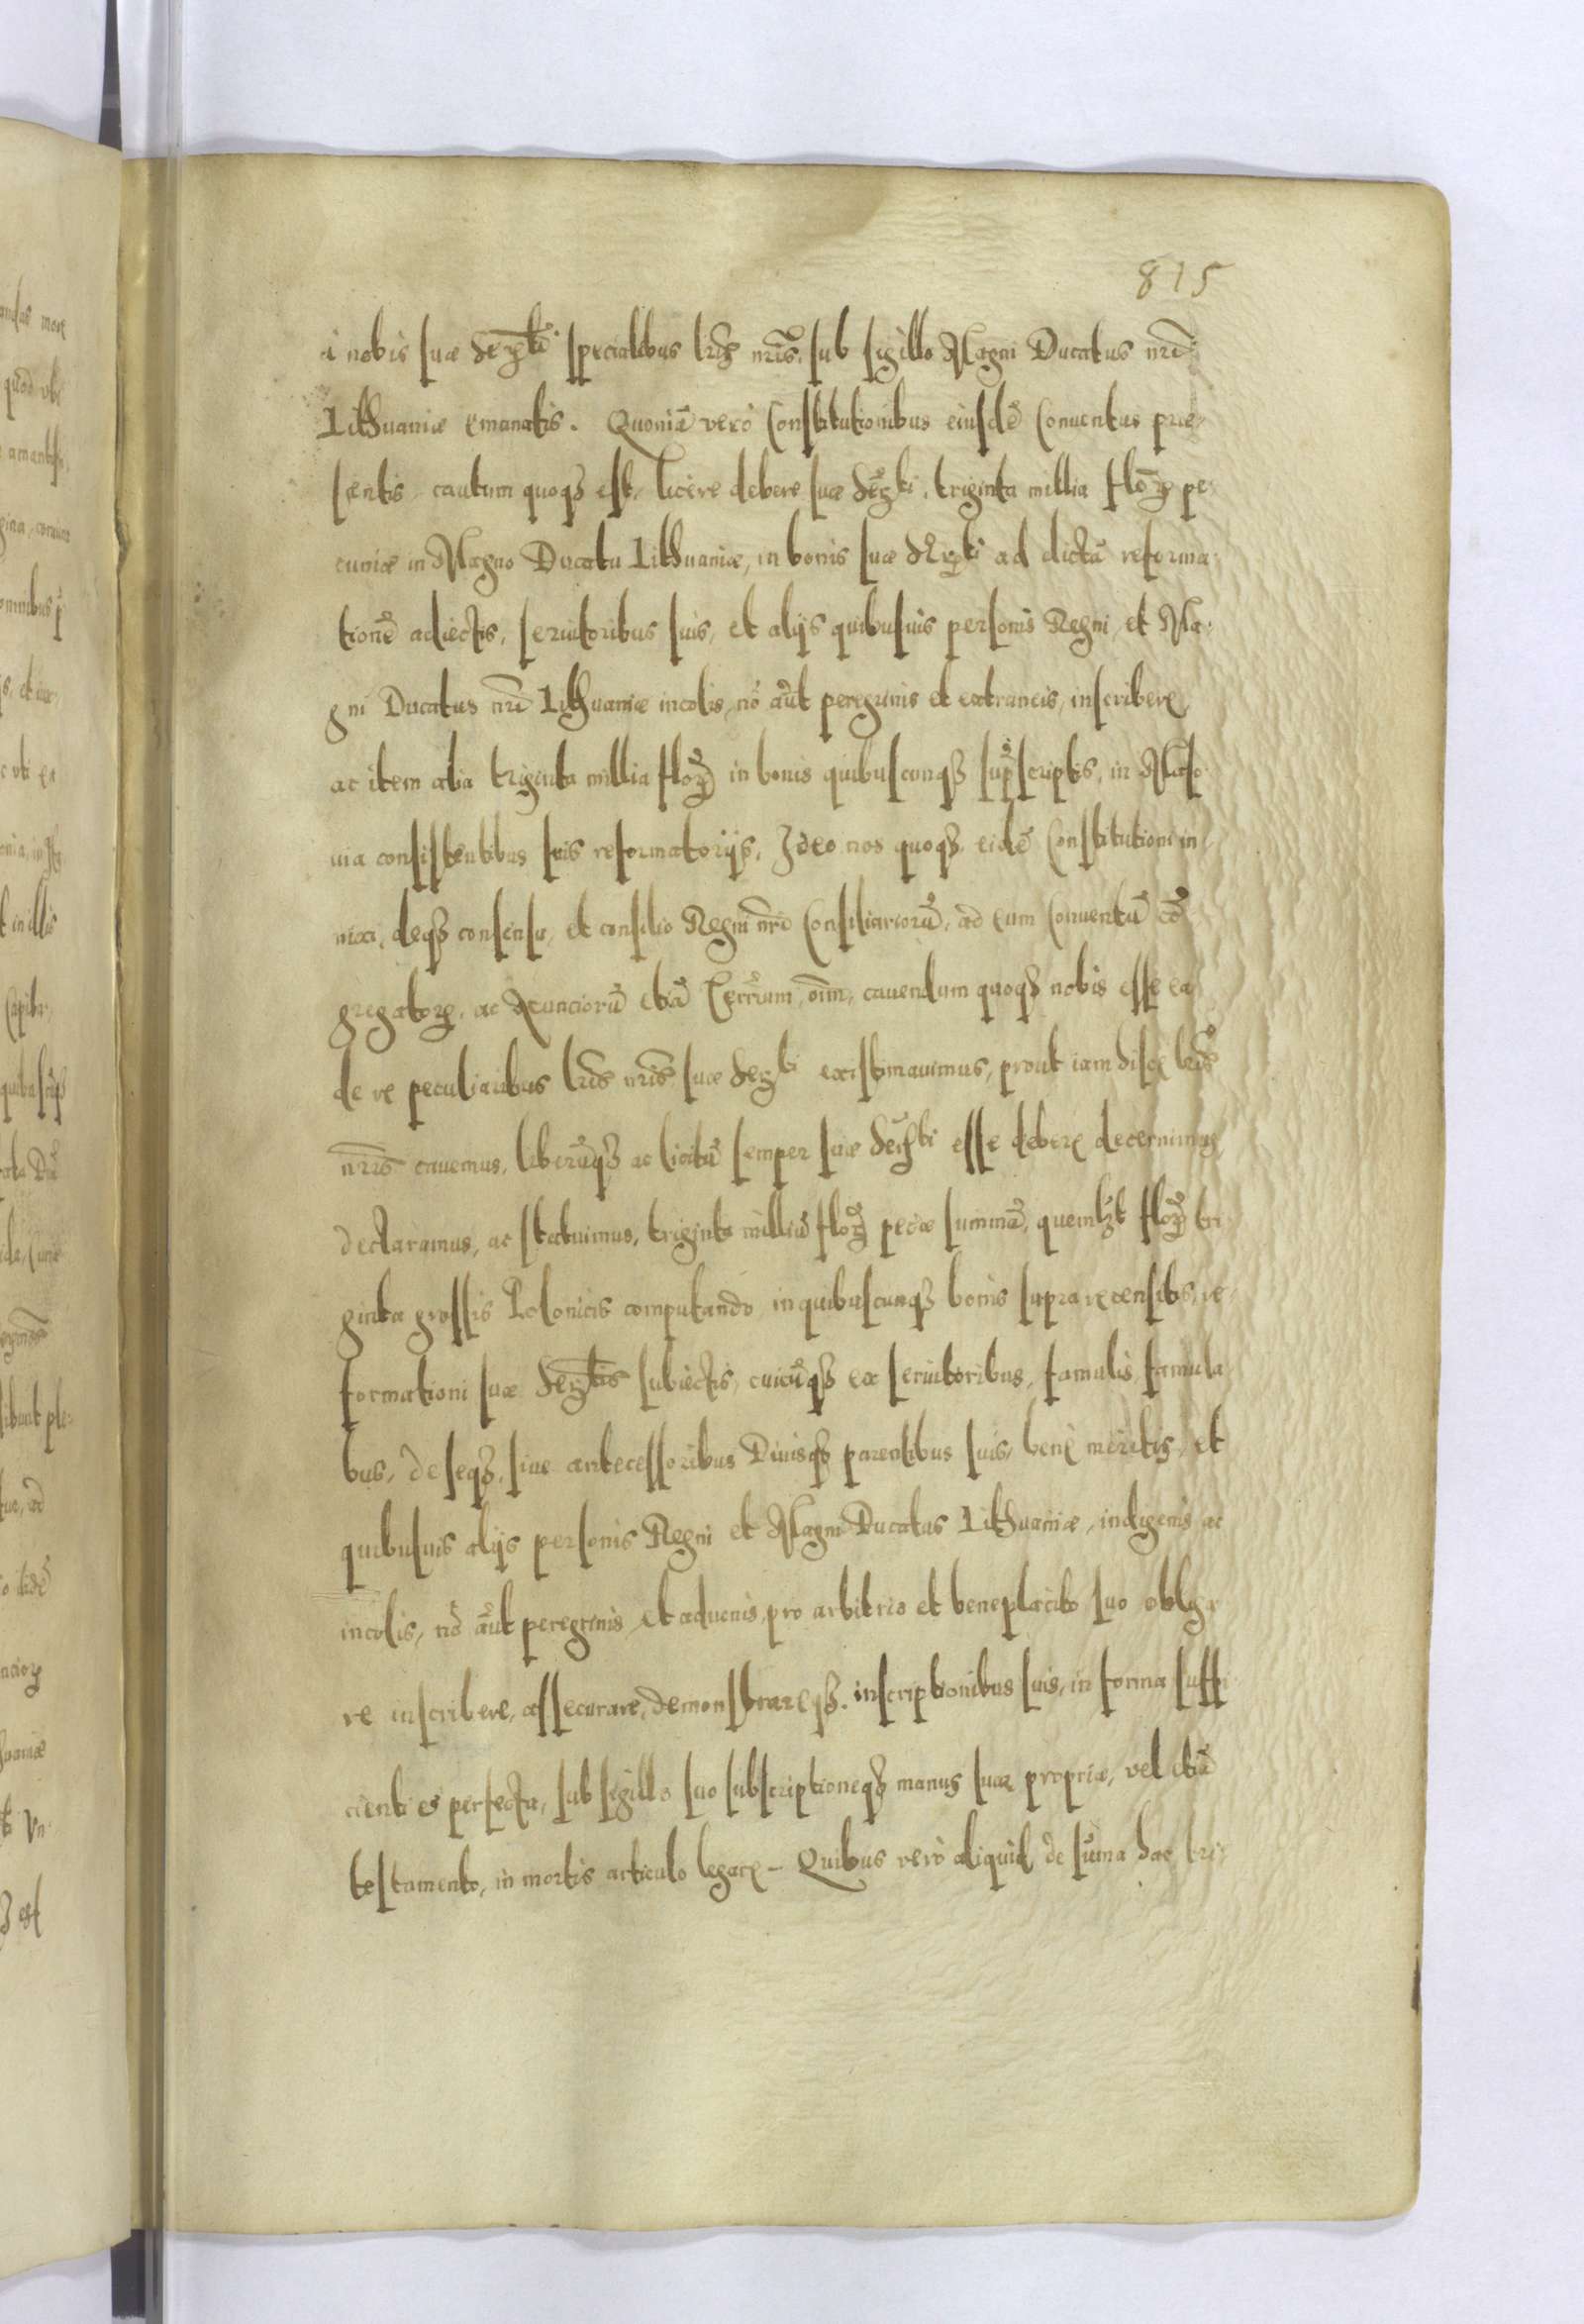 815
a nobis suæ Serti specialibus lris nris, sub sigillo Magni Ducatus nri
Lithuaniæ emanatis. Quoniã verò Constitutionibus eiusdẽ Conuentus præ-
sentis cautum quoqȝ est, licere debere suæ Serti, triginta millia floꝝ pe-
cuniæ in Magno Ducatu Lithuaniæ, in bonis suæ Serti ad dictã reforma-
tionẽ adiectis, seruitoribus suis, et alijs quibusuis personis Regni, et Ma-
gni Ducatus nri Lithuaniæ incolis, nõ aũt peregrinis et extraneis, inscribere,
ac item alia triginta millia floꝝ in bonis quibuscunqȝ suprscriptis, in Maso-
uia consistentibus suis reformatorijs, Ideo nos quoqȝ eidẽ Constitutioni in-
nixi, deqȝ consensu, et consilio Regni nri Consiliariorũ, ad eum Conuentũ cõ-
gregatoꝝ, ac Nunciorũ etiã Terrrum, oĩm, cauendum quoqȝ nobis esse ea
de re peculiaribus lris nris suæ Serti existimauimus, prout iam hisce lris
nris cauemus, liberũqȝ ac licitũ semper suæ Serti esse debere decernimus,
declaramus, ac statuimus, triginta milliũ floꝝ peciæ summã, quemlȝt floꝝ tri-
ginta grossis Polonicis computando, in quibuscunqȝ bonis supra recensitis, re-
formationi suæ Sertis subiectis, cuicũqȝ ex seruitoribus, famulis, famula-
bus, de seqȝ, siue antecessoribus Diuisqȝ parentibus suis, bene meritis, et
quibusuis alijs personis Regni et Magni Ducatus Lithuaniæ, indigenis ac
incolis, nõ aũt peregrinis, et aduenis, pro arbitrio et beneplacito suo obliga-
re inscribere, assecurare, demonstrareqȝ. inscriptionibus suis, in forma suffi-
cienti es perfecta, sub sigillo suo subscriptioneqȝ manus suæ propriæ, vel etiã
testamento, in mortis articulo legare – Quibus verò aliquid de sũma hac tri-